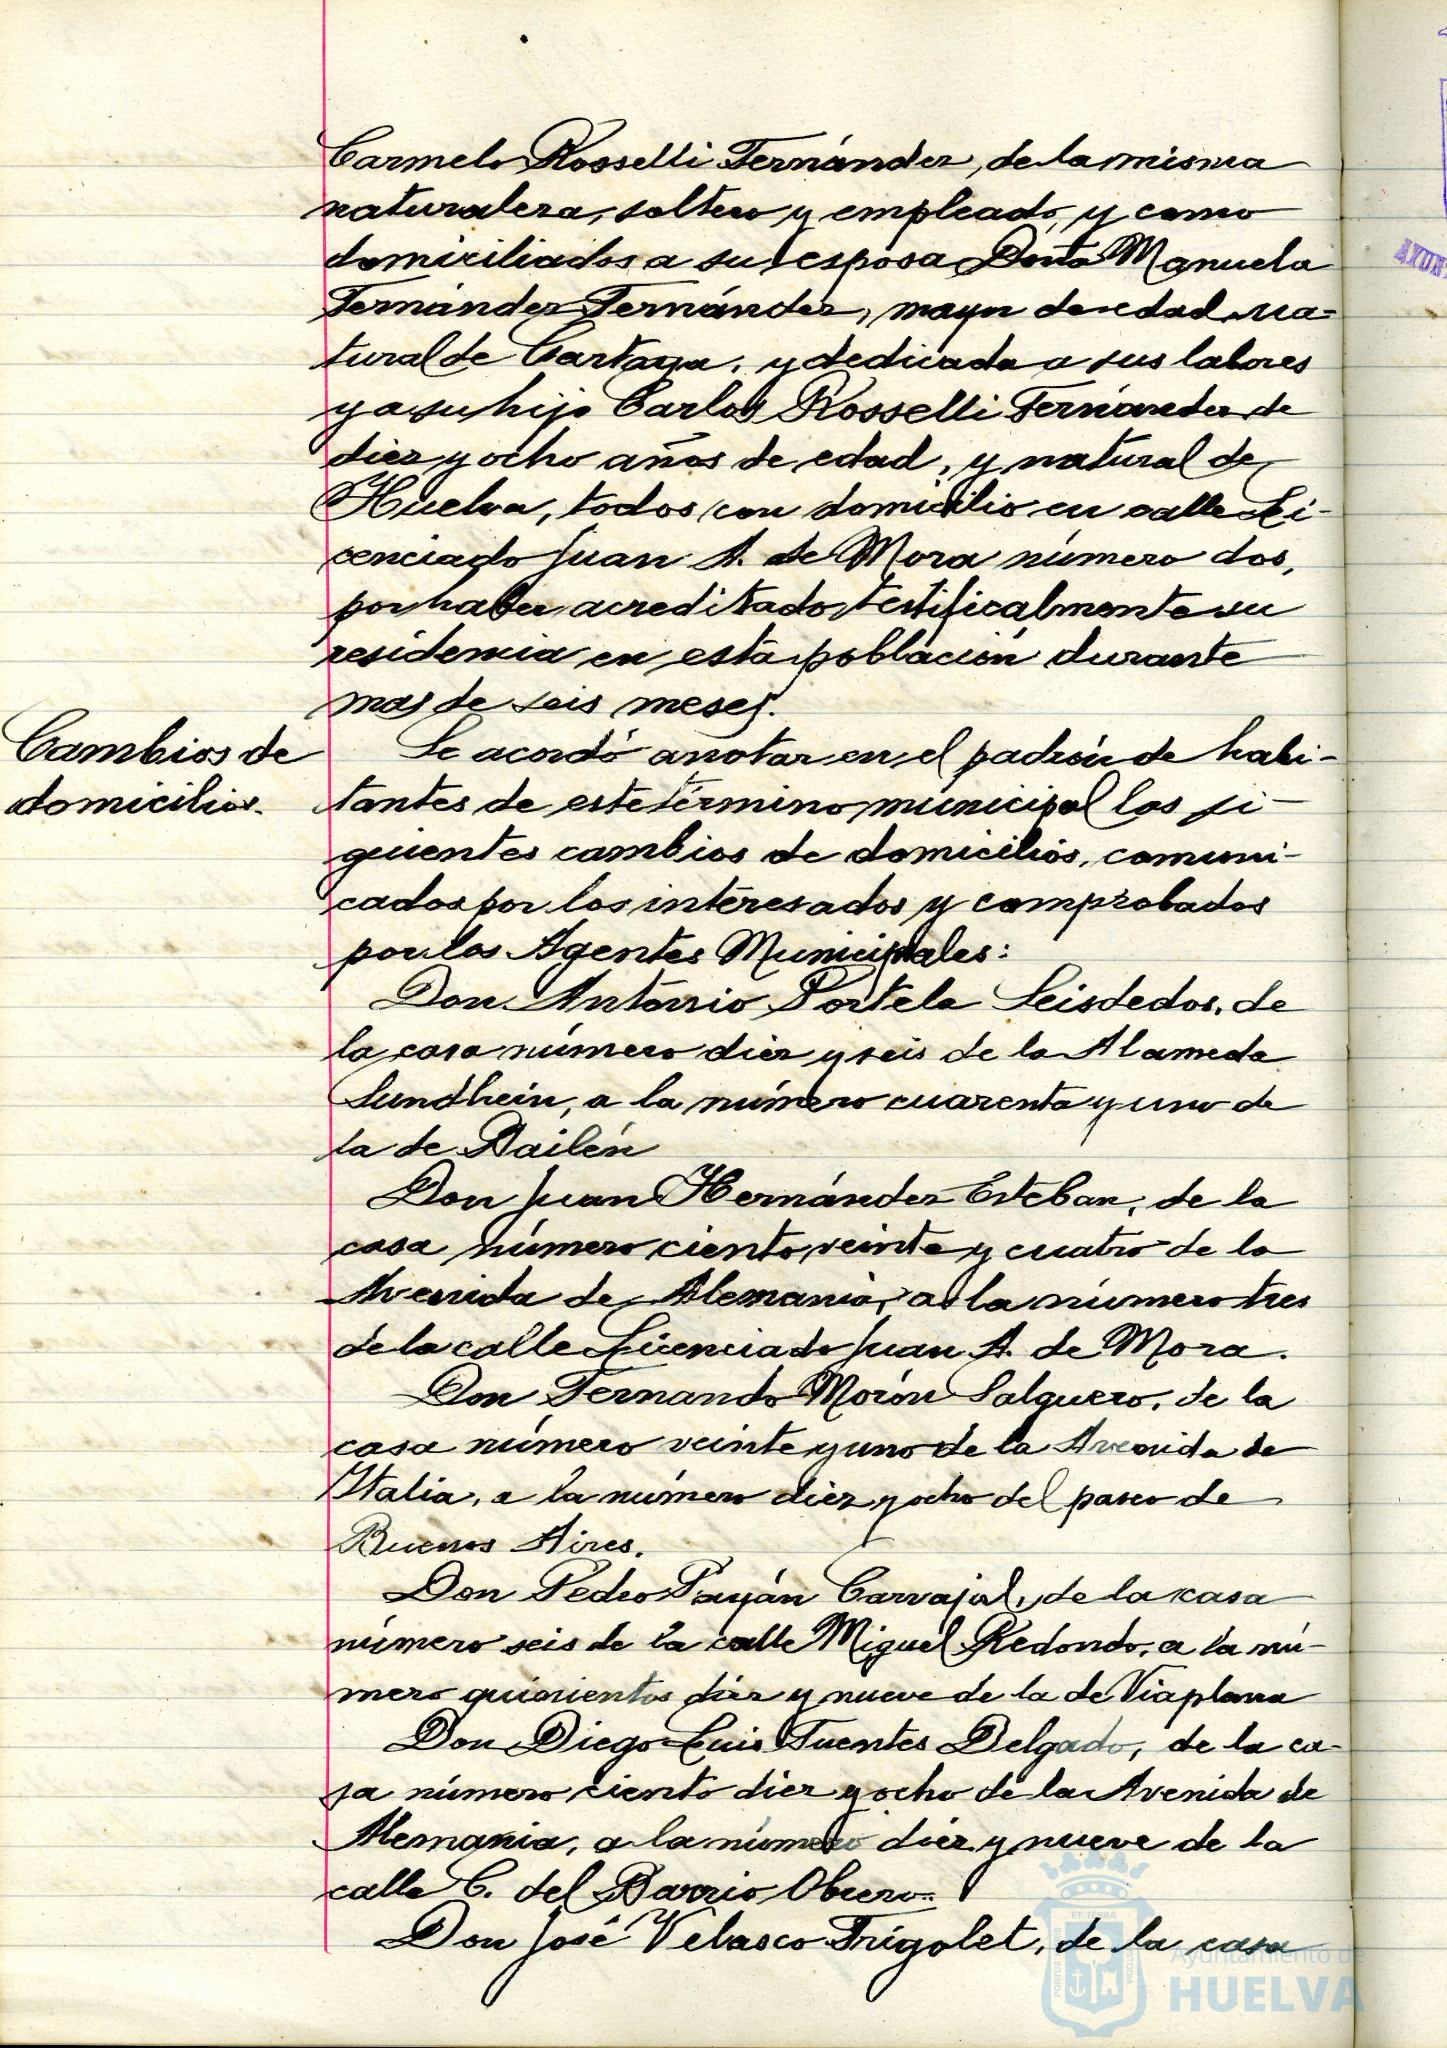 Carmelo Rosselli Fernández, de la misma
naturaleza, soltero y empleado, y como
domiciliados a su esposa Doña Manuela
Fernández Fernández, mayor de edad, na=
tural de Cartaya, y dedicada a sus labores
y a su hijo Carlos Rosselli Fernández de
diez y ocho años de edad, y natural de
Huelva, todos con domicilio en calle Li-
cenciado Juan A. de Mora número dos,
por haber acreditado testificalmente su
residencia en esta población durante
mas de seis meses.
Cambios de
domicilios.
Se acordó anotar en el padrón de habi-
tantes de este término municipal los si-
guientes cambios de domicilios, comuni-
cados por los interesados y comprobados
por los Agentes Municipales:
Don Antonio Portela Seisdedos, de
la casa número diez y seis de la Alameda
Sundhein, a la número cuarenta y uno de
la de Bailén
Don Juan Hernández Esteban, de la
casa número ciento veinte y cuatro de la
Avenida de Alemania, a la número tres
de la calle Licenciado Juan A. de Mora.
Don Fernando Morón Salguero, de la
casa número veinte y uno de la Avenida de
Italia, a la número diez y ocho del paseo de
Buenos Aires.
Don Pedro Payán Carvajal, de la casa
número seis de la calle Miguel Redondo, a la nú-
mero quinientos diez y nueve de la de Viaplana
Don Diego Luis Fuentes Delgado, de la ca-
sa número ciento diez y ocho de la Avenida de
Alemania, a la número diez y nueve de la
calle C. del Barrio Obrero.
Don José Velasco Trigolet, de la casa
Ayuntamiento de
HUELVA